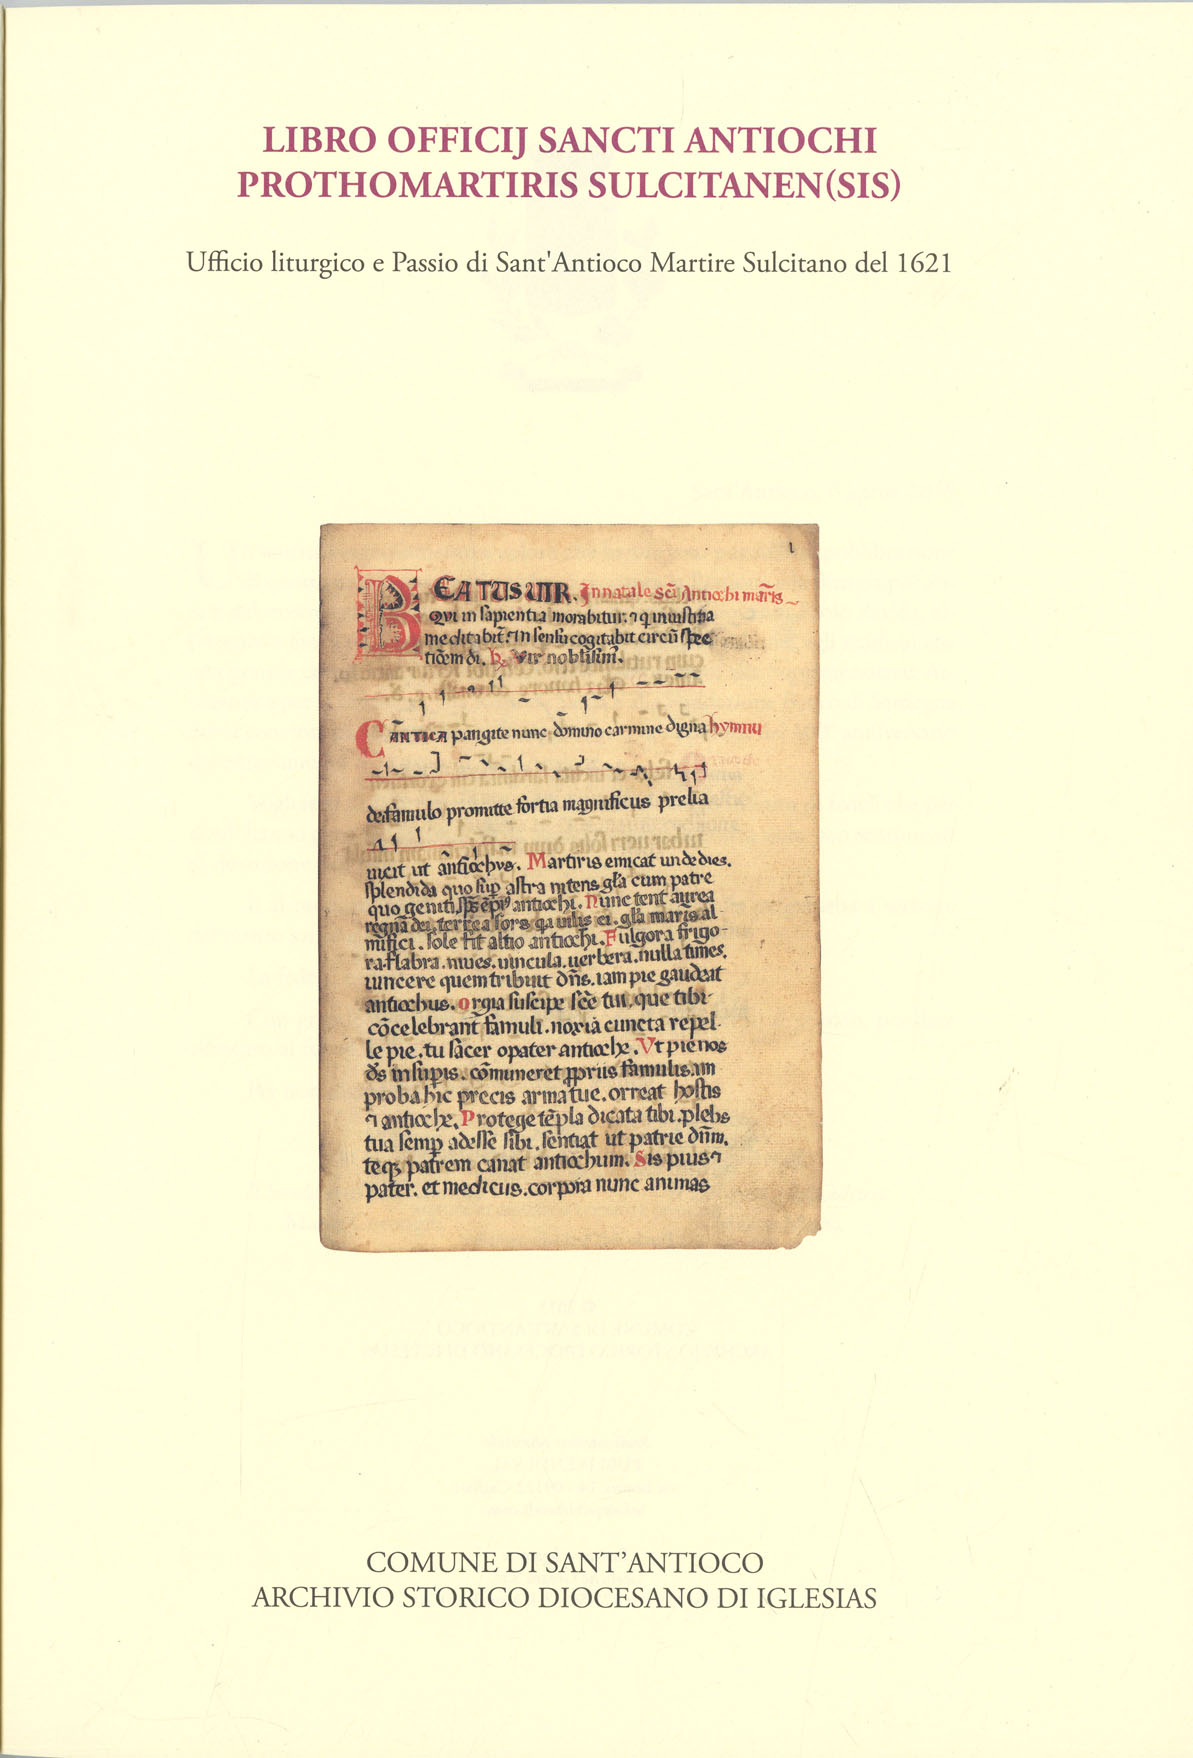 LIBRO OFFICIJ SANCTI ANTIOCHI
PROTHOMARTIRIS SULCITANEN(SIS)
Ufficio liturgico e Passio di Sant'Antioco Martire Sulcitano del 1621
1
BEATUS VIR. In natale sc̃i Antiochi mar̃is
Qui in sapientia morabitur. ⁊ q̇ in iustitia
meditabit̃. ⁊ in sensu cogitabit circũ spec
tiõem di. ℞. Vir nobilissim᷒.
CANTICA pangite nunc domino carmine digna hymnu
de famulo promitte fortia magnificus prelia
uicit ut antiochus. Martiris emicat unde dies.
splendida quo sup astra nitens gl̃a cum patre
quo geniti antiochi. Nunc tent aurea
regna dei. terrea sors q̃a uilis ei. gl̃a mar̃is al
mifici. sole fit altio antiochi. Fulgora frigo-
ra. flabra. niues. uincula. uerbera. nulla times.
uincere quem tribuit dñs. iam pie gaudeat
antiochus. Orgia suscipe sc̃e tui. que tibi
cõcelebrant famuli. noxia cuncta repel-
le pie. tu sacer o pater antioche. Vt pie nos
ds in supis. cõmuneret pprius famulis. im
proba hic precis arma tue. orreat hostis
⁊ antioche. Protege tẽpla dicata tibi. plebs
tua semp adesse sibi. sentiat ut patrie dñm.
teq; patrem canat antiochum. Sis pius ⁊
pater. et medicus. corpora nunc animas
COMUNE DI SANT’ANTIOCO
ARCHIVIO STORICO DIOCESANO DI IGLESIAS